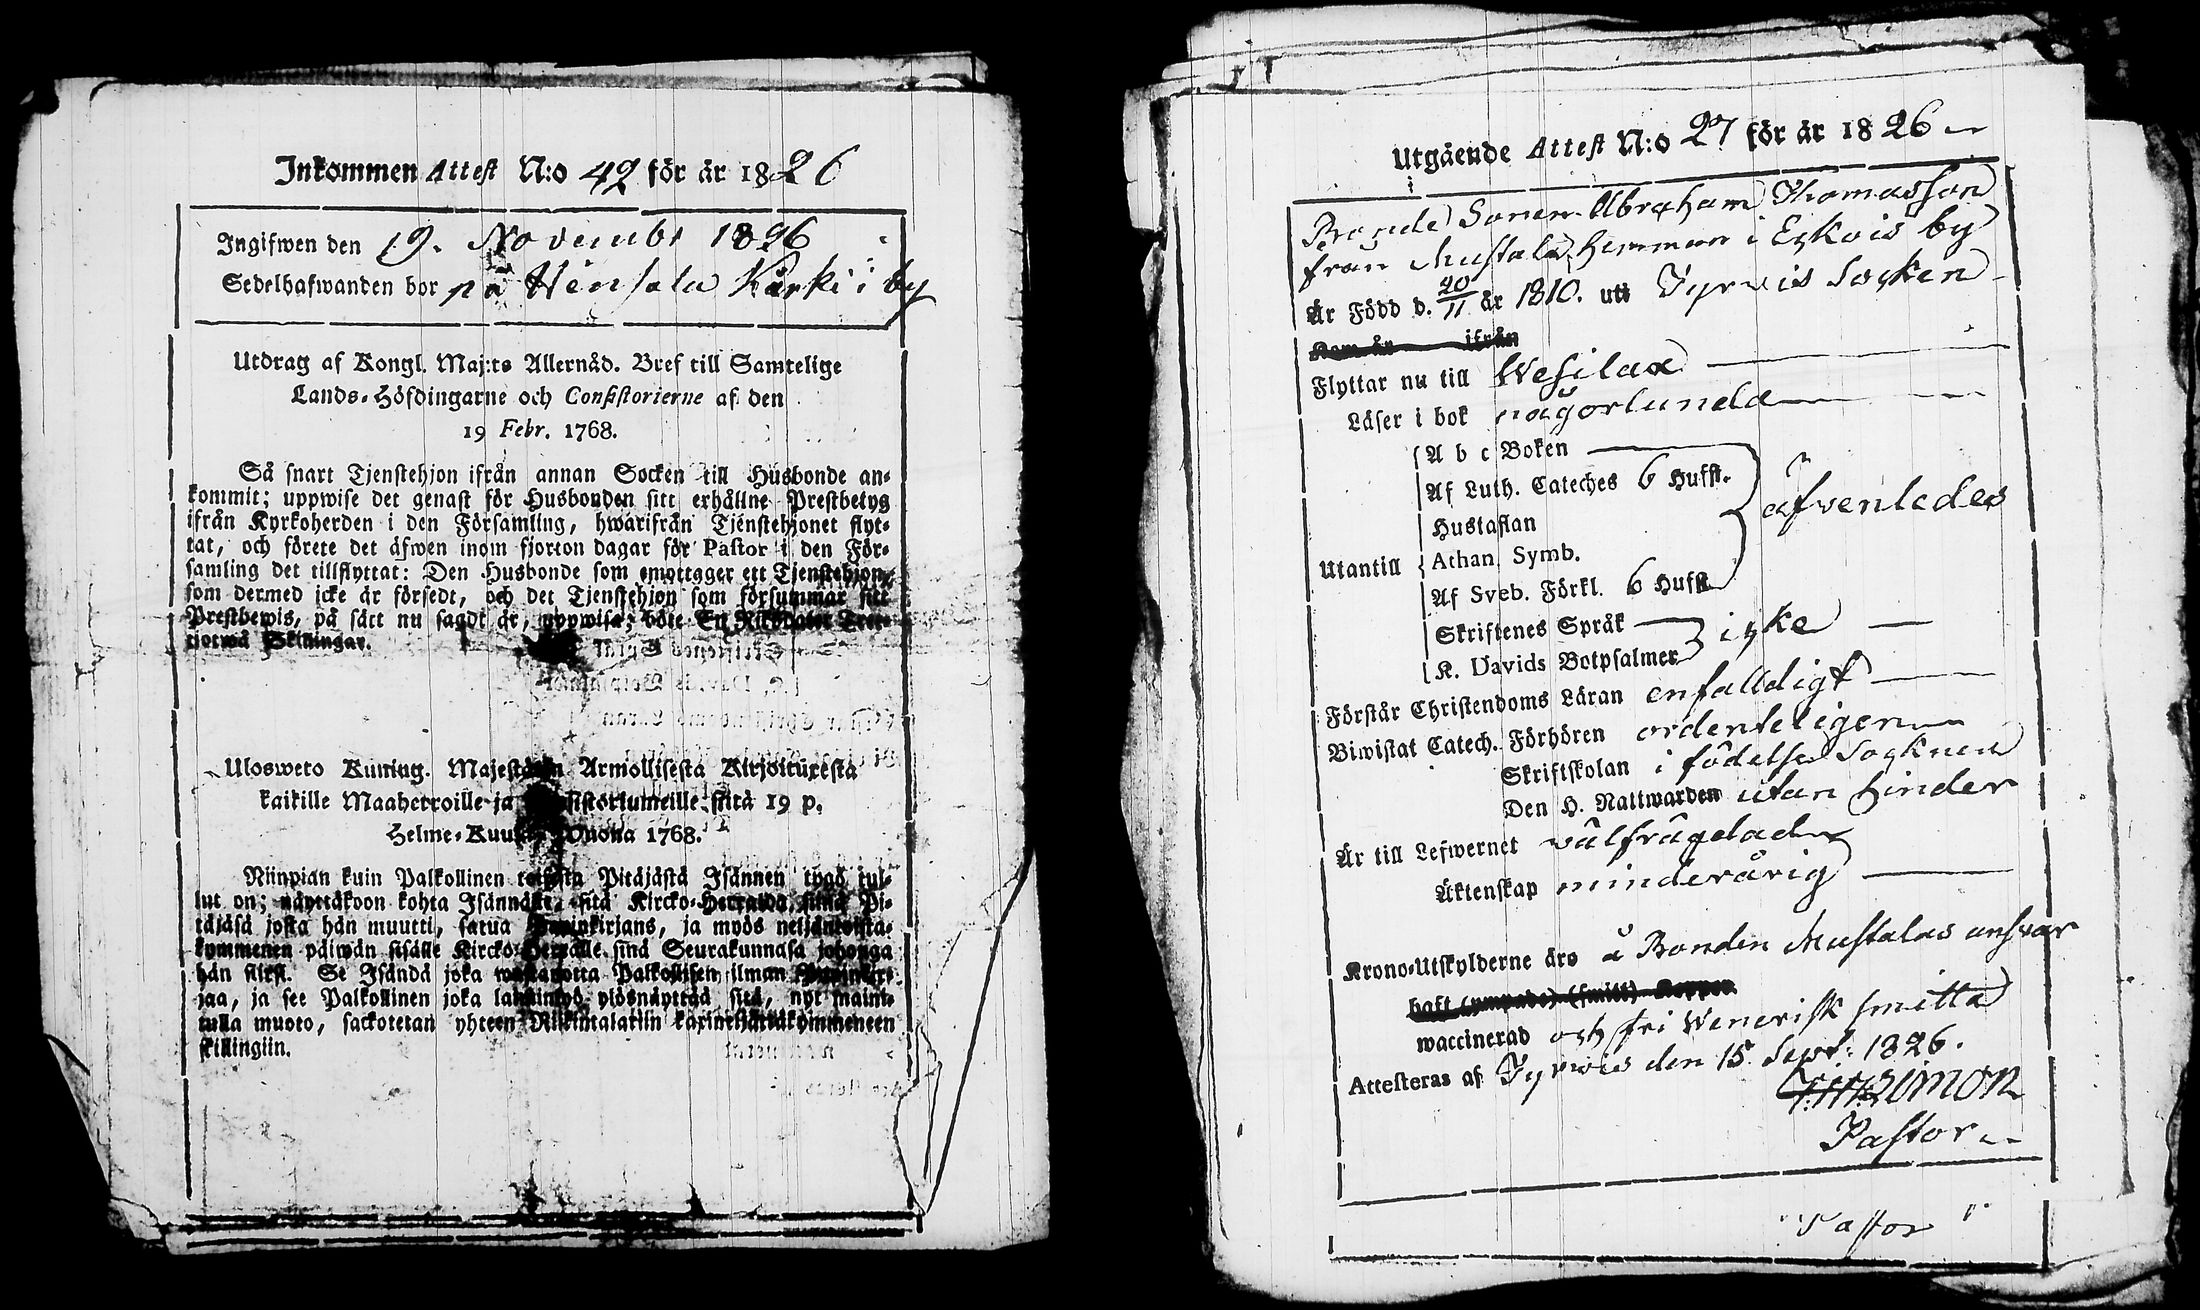 Inkommen Attest N:o 42 för år 1826
Ingifwen den 19. Novembr 1826
Sedelhafwanden bor på Hinsala Kärki i by
Utdrag af Kongl. Maj:ts Allernåd. Bref till Samtelige
Lands-Höfdingarne och Consistorierne af den
19 Febr. 1768.
Så snart Tjenstehjon ifrån annan Socken till Husbonde an-
kommit; uppwise det genast för Husbonden sitt erhållne Prestbetyg
ifrån Kyrkoherden i den Församling, hwarifrån Tjenstehjonet flyt-
tat, och förete det äfwen inom fjorton dagar för Pastor i den För-
samling det tillflyttat: Den Husbonde som emottager ett Tjenstehjon,
som dermed icke är försedt, och det Tjenstehjon som försummar sitt
Prestbewis, på sätt nu sagdt är, uppwisa; böte Ett Riksdaler Tret-
tiotwå Skillingar.
Ulosweto Kuning. Majestätin Armollisesta Kirjoituxesta
kaikille Maaherroille ja Consistoriumeille siitä 19 p.
Helme-Kuusa Wuona 1768.
Niinpian kuin Palkollinen toisesta Pitäjästä Isännen tygö tul-
lut on; näyttäkoon kohta Isännälle, sitä Kircko-Herralda, siinä Pi-
täjäsä josta hän muutti, saatua Papinkirjans, ja myös neljäntoista-
kymmenen päiwän sisälle Kircko-Herralle siná Seurakunnasa johonga
hän siirsi. Se Isändä joka wastanotta Palkollisen ilman Papinkir-
jaa, ja see Palkollinen joka laiminlyö ylösnäyttää sitä, nyt maini-
tulla muoto, sackotetan yhteen Riikintalariin kaxineljättäkymmeneen
skillingiin.
Utgående Attest N:o 27 för år 1826
Bonde Sonen Abraham Thomasson
från Mustala hemman i Eskois by
Är Född d. 20/11 år 1810. uti Tyrwis Socken
Kom år ifrån
Flyttar nu till Wesilax
Läser i bok någorlunda
Utantill
A b c Boken
Af Luth. Cateches 6 Hufst.
Hustaflan
Athan. Symb.
Af Sveb. Förkl. 6 Hufst.
äfvenledes
Skriftenes Språk
K. Davids Botpsalmer
icke
Förstår Christendoms Läran enfalldigt
Biwistat Catech. Förhören ordenteligen
Skriftskolan i födelse Socknen
Den H. Nattwarden utan hinder
Är till Lefwernet välfrägdad
Äktenskap minderårig
Krono-Utskylderne äro å Bonden Mustalas answar
haft (ympade) (smitt) Koppor
waccinerad och fri Wenerisk smitta
Attesteras af Tyrwis den 15 Sept: 1826.
Pastor
Pastor